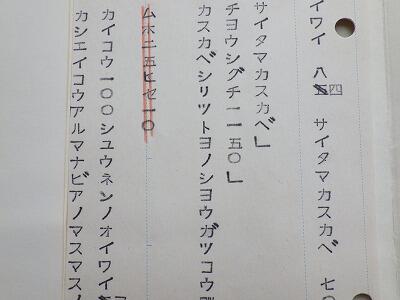 イワイ 八 四 サイタマカスカベ 七〇
サイタマカスカベ」
チヨウシグチ二一五〇」
カスカベシリツトヨノシヨウガツコウ
ムホ二五ヒセ一〇
カイコウ一〇〇シユウネンノオイワイ
カシエイコウアルマナビアノマスマス